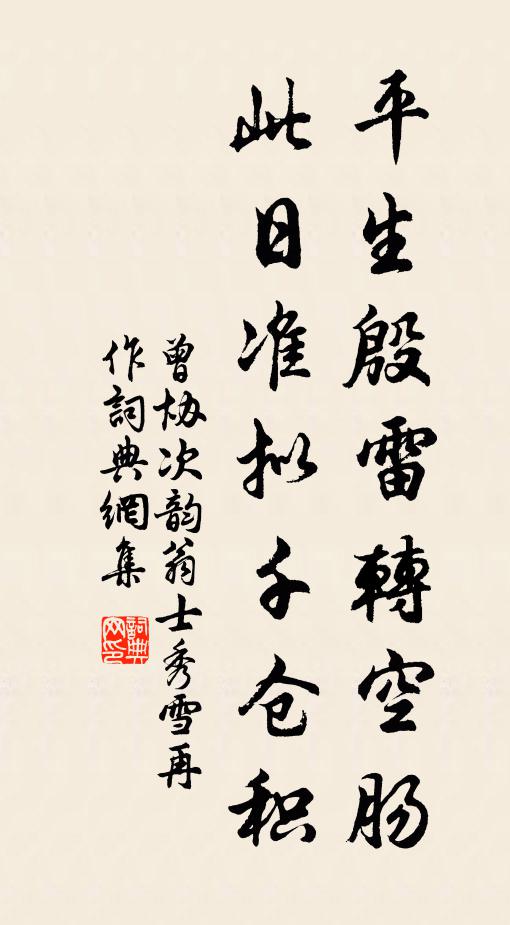 平生殷雷轉空肠
此日准拟千仓积
曾协次韵翁士秀雪再
作詞典網集
詞典网印